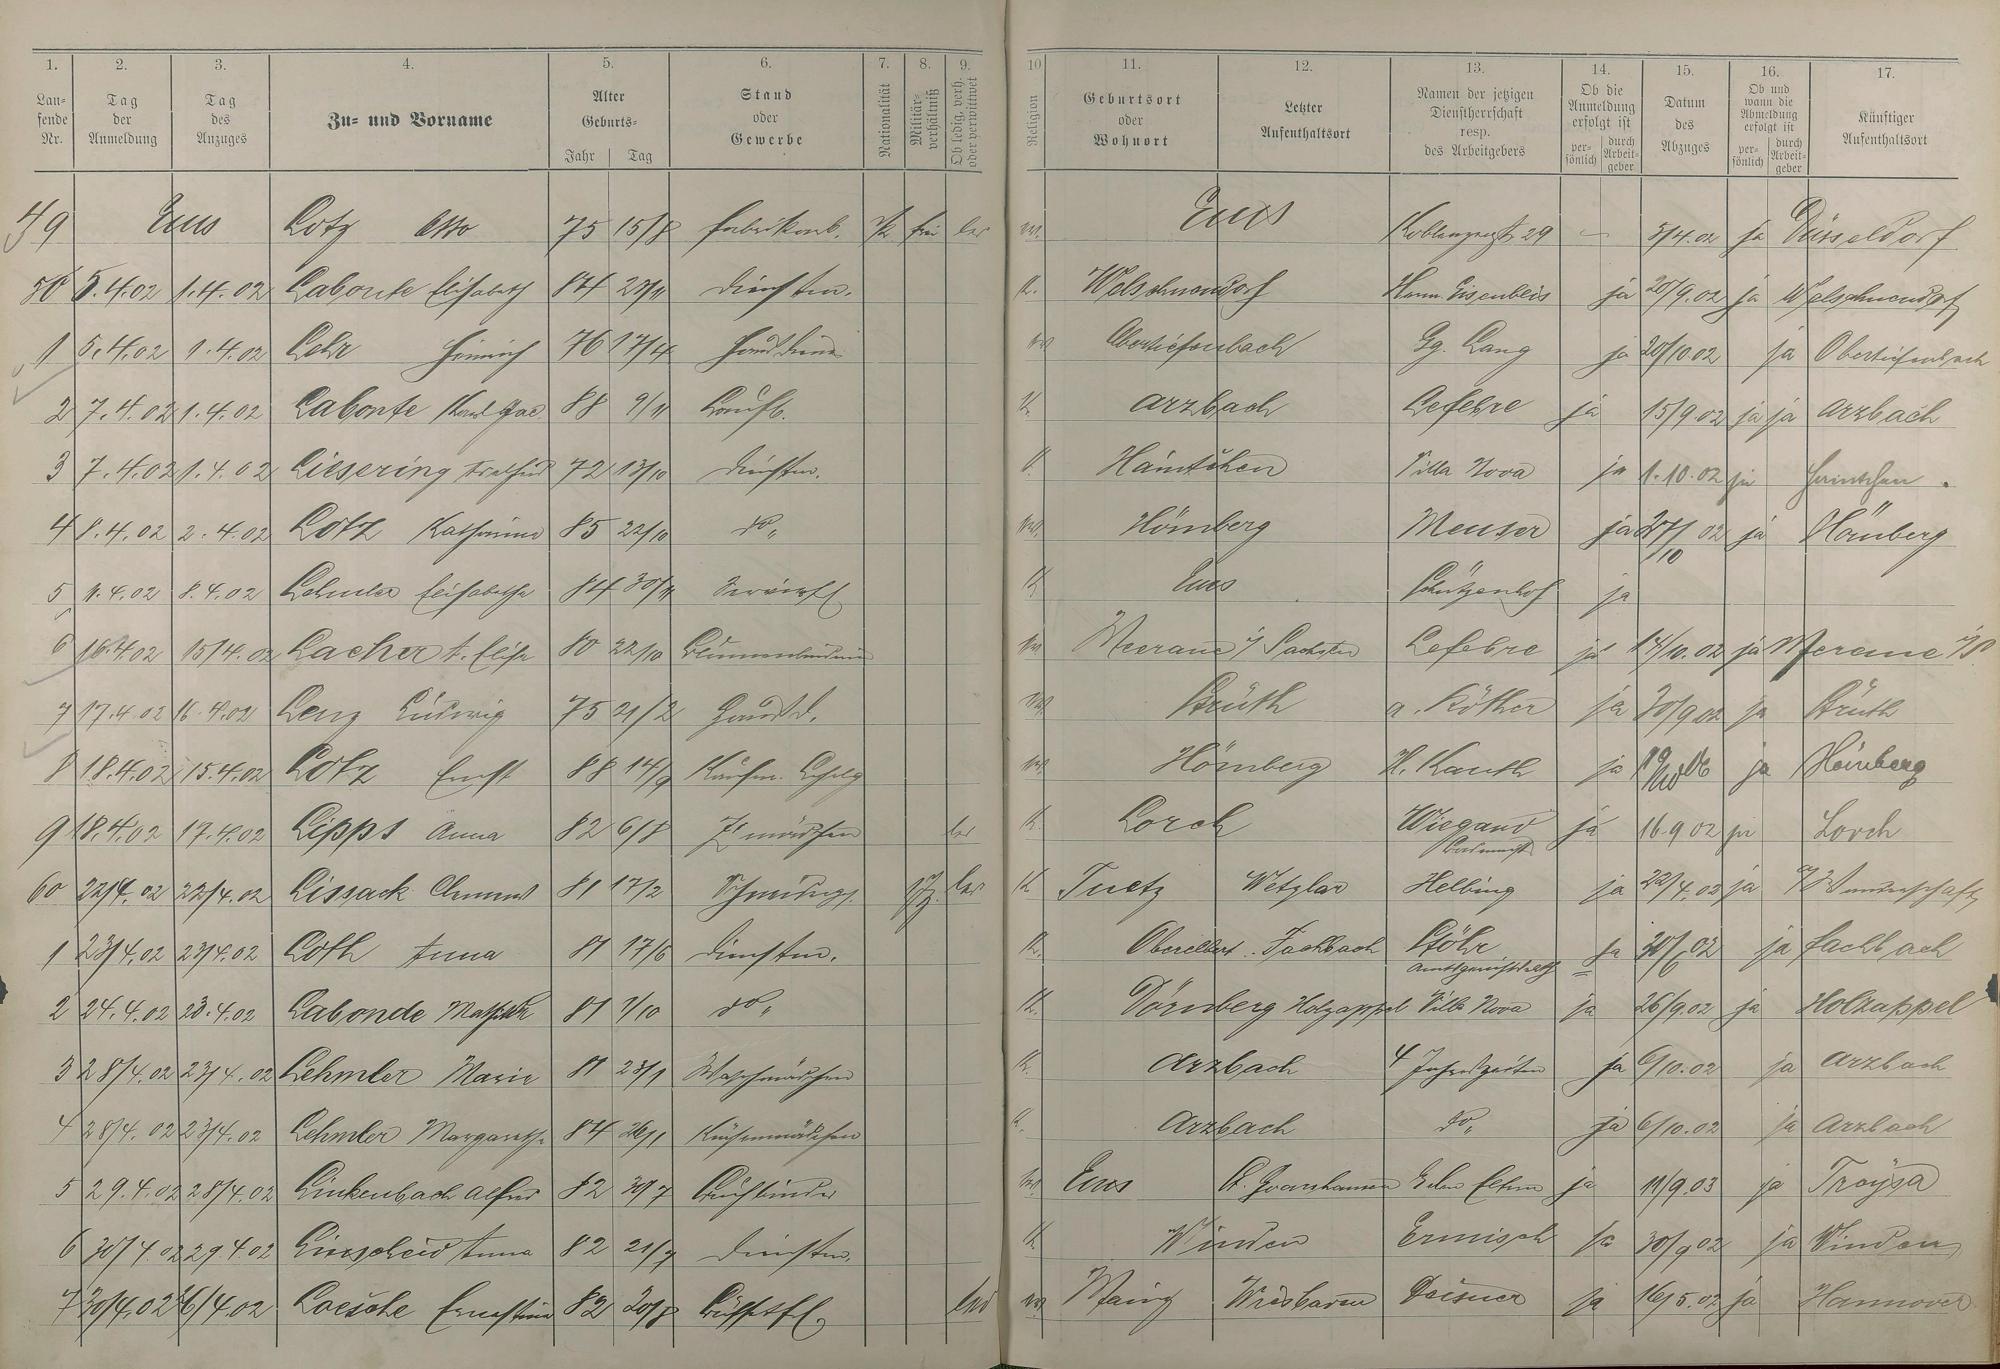 1. 2. 3. 4. 5. 6. 7. 8. 9. 10 11. 12. 13. 14. 15. 16. 17.
Lau- fende Nr. Tag der Anmeldung Tag des Anzuges Zu- und Vorname Alter Geburts- Jahr Tag Stand oder Gewerbe Nationalität Militär- verhältniß Ob ledig, verh. oder verwittwet Religion Geburtsort oder Wohnort Letzter Aufenthaltsort Namen der jetzigen Dienstherrschaft resp. des Arbeitgebers Ob die Anmeldung erfolgt ist per- sönlich durch Arbeit- geber Datum des Abzuges Ob und wann die Abmeldung erfolgt ist per- sönlich durch Arbeit- geber Künftiger Aufenthaltsort
49 Ems Lotz Otto 75 15/8 Fabrikarb. frei led Ems Koblenzerstr 29 — 3/4.02 ja Düsseldorf
50 5.4.02 1.4.02 Labonte Elisabeth 84 23/11 Dienstm. K. Welschneudorf Herm. Eisenbeis ja 20/9.02 ja Welschneudorf
1 5.4.02 1.4.02 Lehr Heinrich 76 17/4 Hausdiener Obertiefenbach Gg. Lang ja 20/10 02 ja Obertiefenbach
2 7.4.02 1.4.02 Labonte Karl 88 9/11 Laufb. K. Arzbach Lefebre ja 15/9.02 ja ja Arzbach
3 7.4.02 1.4.02 Liesering 72 13/10 Dienstm. K. Haintchen Villa Nova ja 1.10.02 ja Haintchen.
4 8.4.02 2.4.02 Lotz Katharina 85 22/10 do„ Hömberg Meuser ja 27/10 02 ja Hömberg
5 11.4.02 8.4.02 Lehmler Elisabetha 84 30/11 Servierfl K Ems Schützenhof ja
6 16.4.02 15/4.02 Lacher A. Elise 80 22/10 Blumenbinderin Meerane i/ Sachsen Lefebre ja 14/10.02 ja Merane i/S.
7 17.4.02 16.4.02 Lenz Ludwig 75 21/2 Hausd. Strüth a. Köther ja 30/9 02 ja Strüth
8 18.4.02 15.4.02 Lotz Ernst 88 14/9 Kaufm. Lehrlg Hömberg H. Kauth ja ja Hömberg
9 18.4.02 17.4.02 Lipps Anna 82 6/8 Zimädchen led K. Lorch Wiegand ja 16.9 02 ja Lorch
60 22/4.02 22/4.02 Lissack 81 17/2 Schneiderg. led K Tuetz Wetzlar Helbing ja 22/4.02 ja a/Wanderschaft
1 23/4.02 23/4.02 Loth Anna 81 17/6 Dienstm. K. Oberelbert Fachbach Stöhr Amtsgerichtsrath ja 30/6 02 ja Fachbach
2 24.4.02 23.4.02 Labonde Mathilde 81 7/10 do„ K. Dörnberg Holzappel Villa Nova ja 26/9.02 ja Holzappel
3 28/4.02 23/4.02 Lehmler Marie 81 23/1 Waschmädchen K. Arzbach 4 Jahreszeiten ja 6/10.02 ja Arzbach
4 28/4.02 23/4.02 Lehmler Margarethe 84 26/1 Küchenmädchen K. Arzbach do„ ja 6/10.02 ja Arzbach
5 29.4.02 28/4.02 Linkenbach Alfred 82 30/7 Buchbinder Ems St. Goarshausen ja 11/9.03 ja Troysa
6 30/4.02 29.4.02 Linscheid Anna 82 21/7 Dienstm. K Winden Ermisch ja 30/9 02 ja Winden
7 30/4.02 26/4.02 Loesche Ernestine 82 20/8 Büffetfl. led Mainz Wiesbaden Deisner ja 16/5.02 ja Hannover